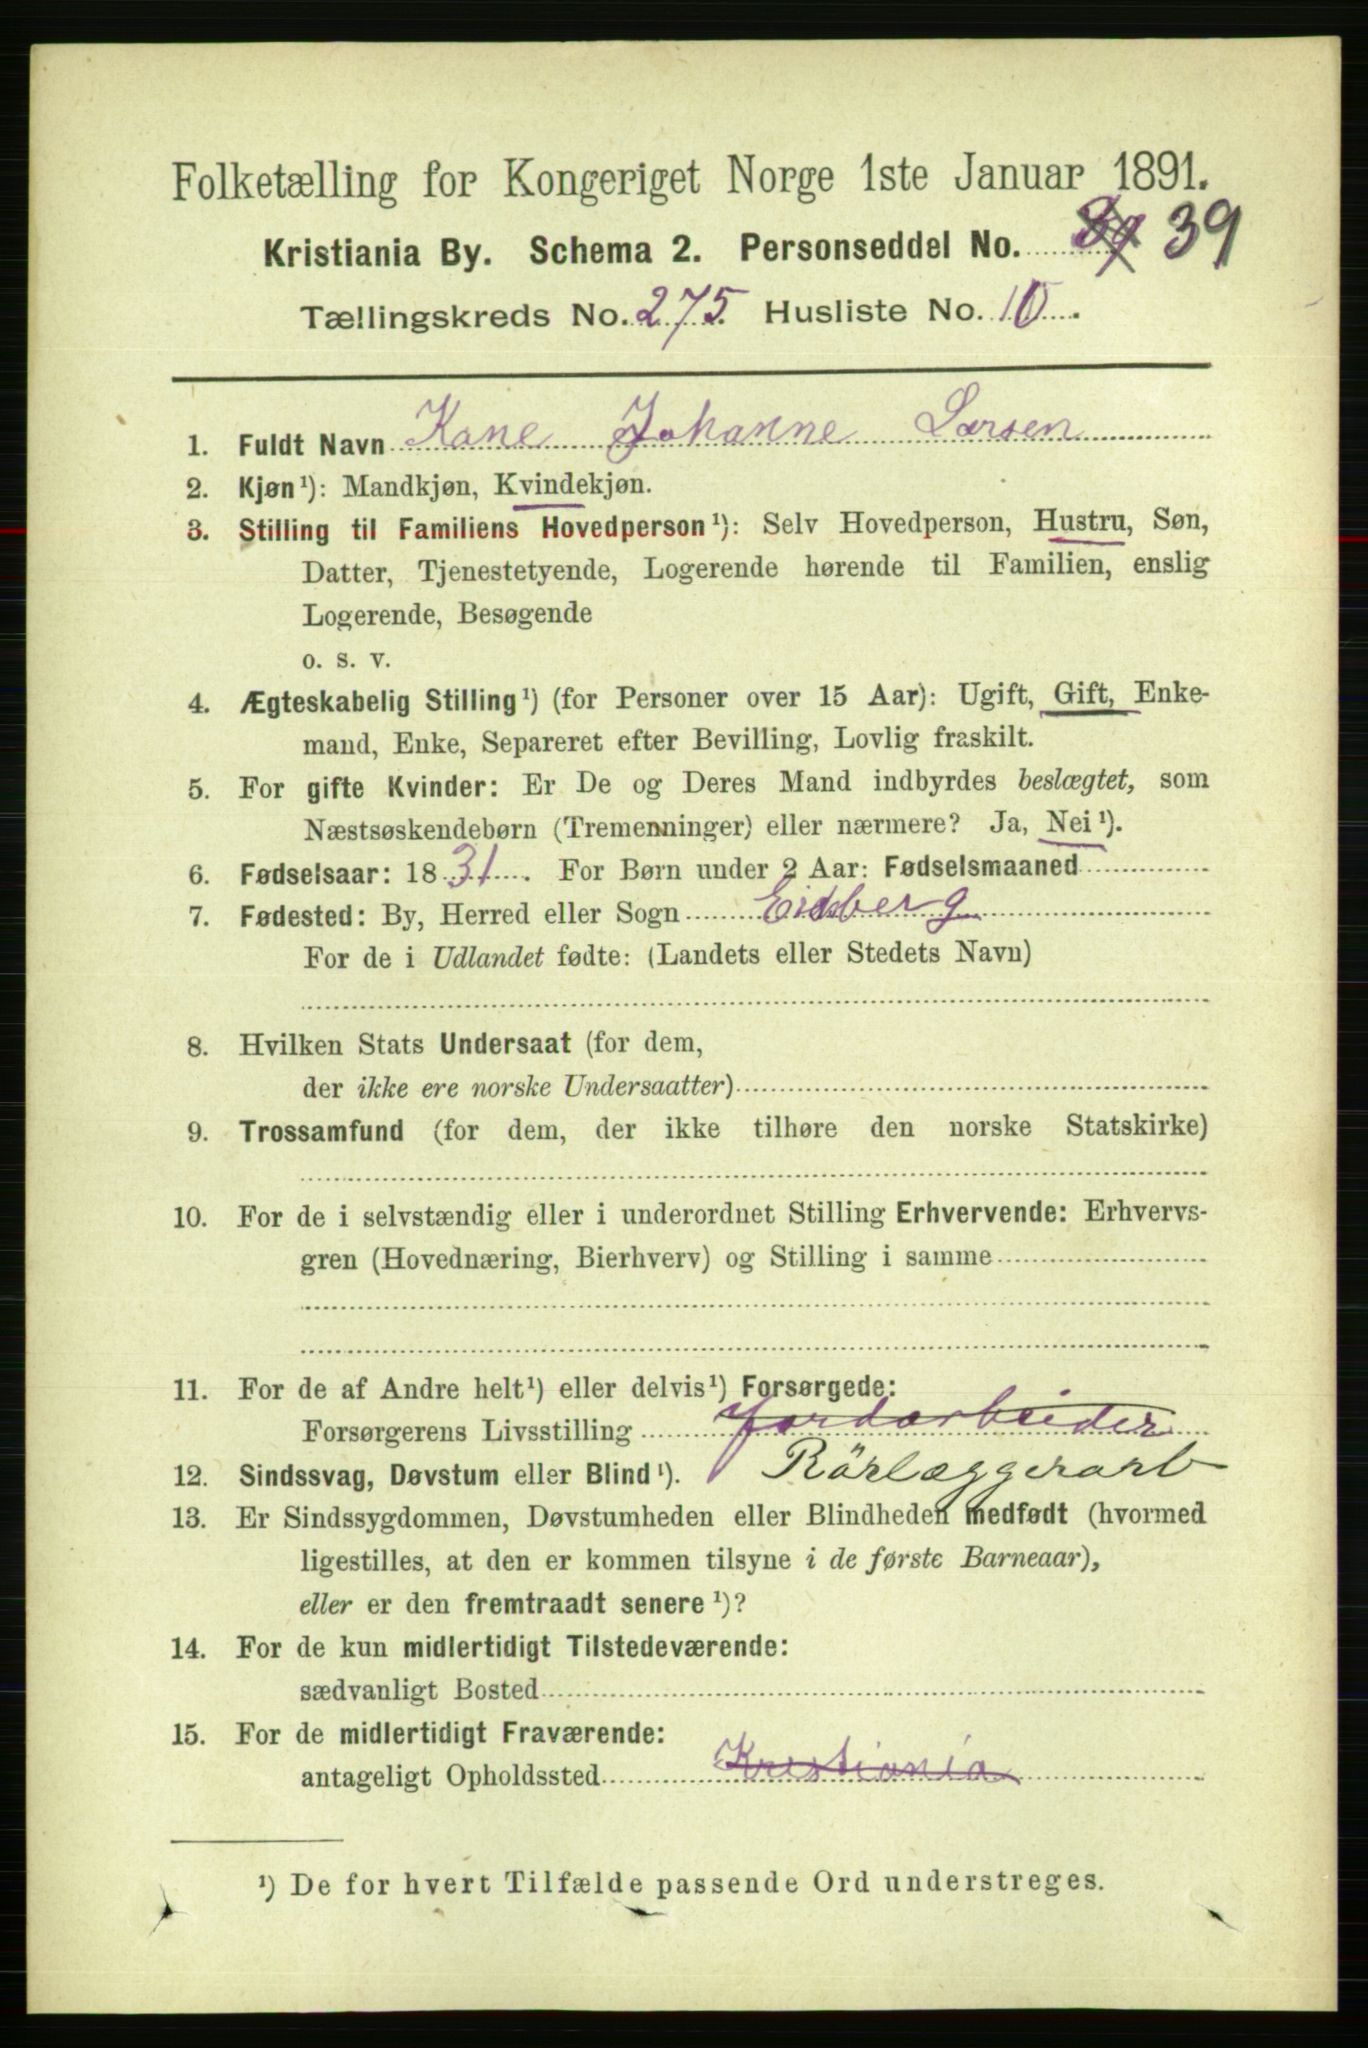 Folketælling for Kongeriget Norge 1ste Januar 1891.
Kristiania By. Schema 2. Personseddel No. 39
Tællingskreds No. 275 Husliste No. 10.
1. Fuldt Navn Kone Johanne Larsen
2. Kjøn¹): Mandkjøn, Kvindekjøn.
3. Stilling til Familiens Hovedperson¹): Selv Hovedperson, Hustru, Søn,
Datter, Tjenestetyende, Logerende hørende til Familien, enslig
Logerende, Besøgende
o. s. v.
4. Ægteskabelig Stilling¹) (for Personer over 15 Aar): Ugift, Gift, Enke-
mand, Enke, Separeret efter Bevilling, Lovlig fraskilt.
5. For gifte Kvinder: Er De og Deres Mand indbyrdes beslægtet, som
Næstsøskendebørn (Tremenninger) eller nærmere? Ja, Nei¹).
6. Fødselsaar: 1831. For Børn under 2 Aar: Fødselsmaaned
7. Fødested: By, Herred eller Sogn Eidsberg
For de i Udlandet fødte: (Landets eller Stedets Navn)
8. Hvilken Stats Undersaat (for dem,
der ikke ere norske Undersaatter)
9. Trossamfund (for dem, der ikke tilhøre den norske Statskirke)
10. For de i selvstændig eller i underordnet Stilling Erhvervende: Erhvervs-
gren (Hovednæring, Bierhverv) og Stilling i samme
11. For de af Andre helt¹) eller delvis¹) Forsørgede:
Forsørgerens Livsstilling Jordarbeider
12. Sindssvag, Døvstum eller Blind¹). Rörlæggerarb
13. Er Sindssygdommen, Døvstumheden eller Blindheden medfødt (hvormed
ligestilles, at den er kommen tilsyne i de første Barneaar),
eller er den fremtraadt senere¹)?
14. For de kun midlertidigt Tilstedeværende:
sædvanligt Bosted
15. For de midlertidigt Fraværende:
antageligt Opholdssted Kristiania
¹) De for hvert Tilfælde passende Ord understreges.